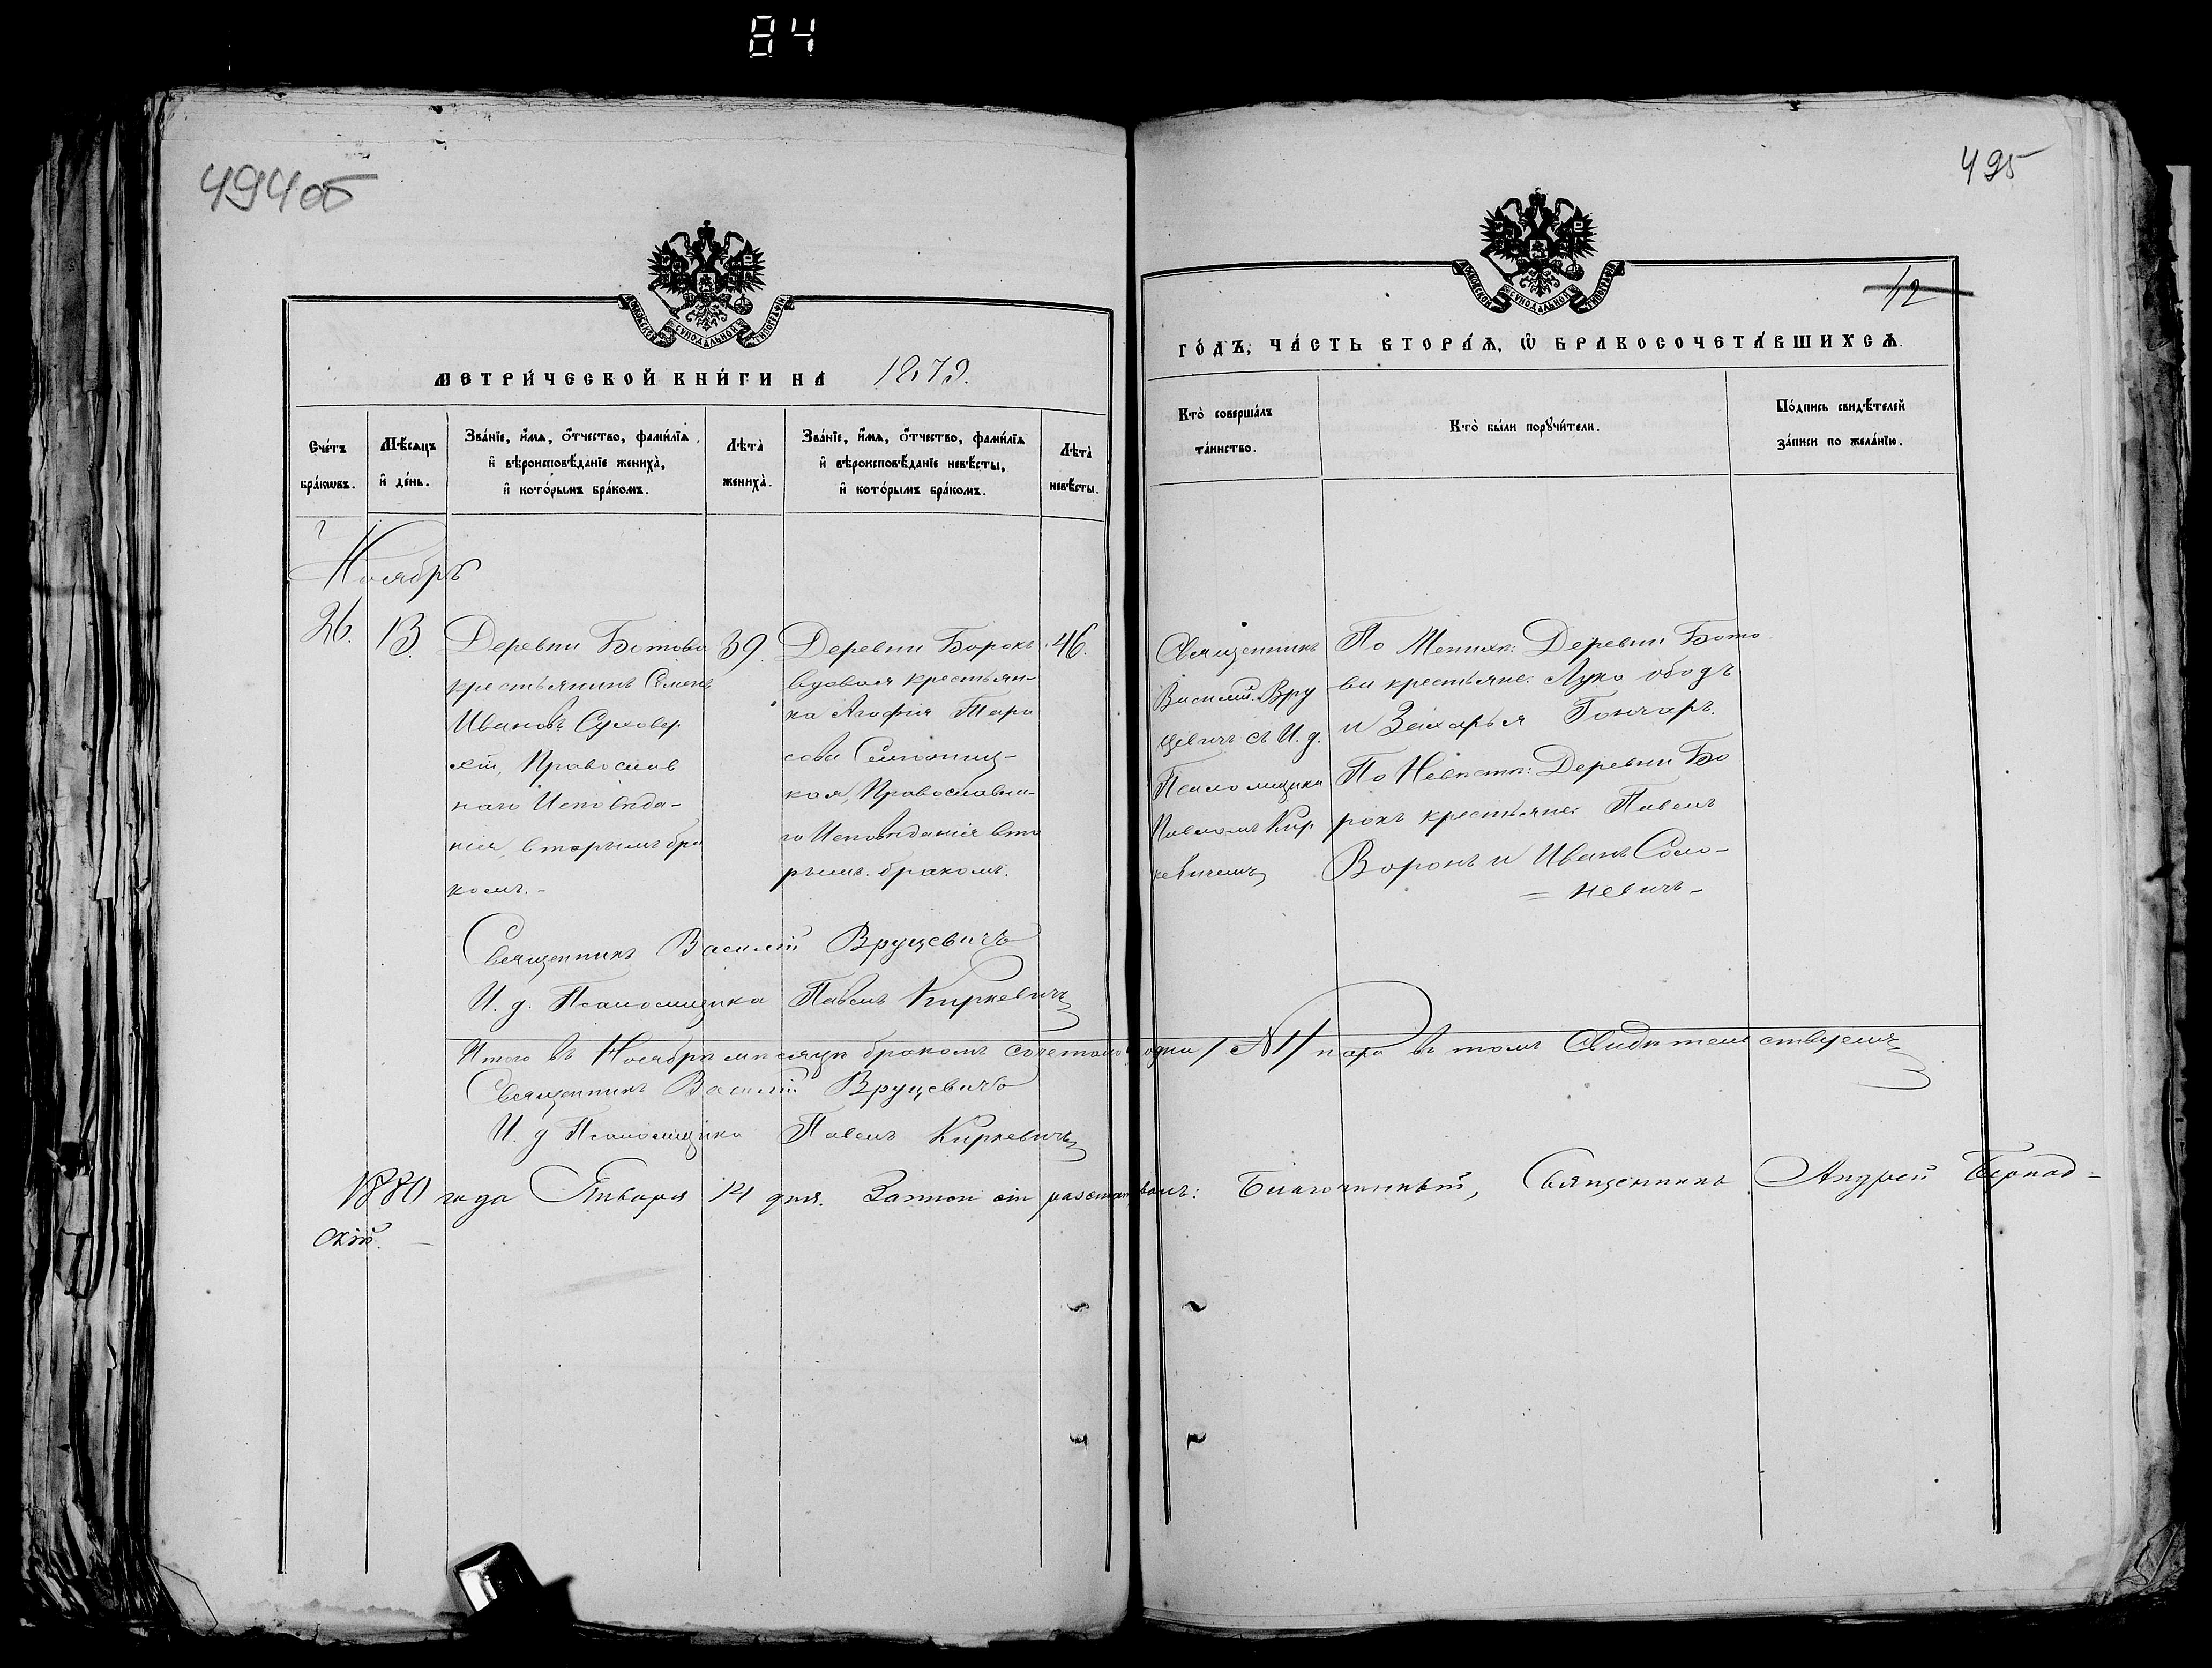 84
494об
495
12
МОСКОВСКОЙ СѴНОДАЛЬНОЙ ТИПОГРАФІИ
МОСКОВСКОЙ СѴНОДАЛЬНОЙ ТИПОГРАФІИ
МЕТРИ́ЧЕСКОЙ КНИ́ГИ НА 1879.
ГО́ДЪ, ЧА́СТЬ ВТОРА́Ѧ, Ѡ҆ БРАКОСОЧЕТА́ВШИХСѦ.
Сче́тъ
бра́кѡвъ.
Мѣ́сяцъ
и҆ де́нь.
Зва́нїе, и҆́мѧ, ѻ҆́тчество, фами́лїѧ
и҆ вѣроисповѣ́данїе жениха̀,
и҆ кото́рымъ бра́комъ.
Лѣта̀
жениха̀.
Зва́нїе, и҆́мѧ, ѻ҆́тчество, фами́лїѧ
и҆ вѣроисповѣ́данїе невѣ́сты,
и҆ кото́рымъ бра́комъ.
Лѣта̀
невѣ́сты.
Кто̀ соверша́лъ
та́инство.
Кто̀ бы́ли порꙋчи́тели.
По́дпись свидѣ́телей
за́писи по жела́нїю.
Ноябрь
26.
13.
Деревни Ботово
крестьянинъ Семенъ
Ивановъ Суховер
хій, Православ
наго Исповѣда-
нія, вторымъ бра
комъ.-
39.
Деревни Борокъ
вдовая крестьян-
ка Агафія Тара
сова
кая, Православна-
го Исповѣданія вто
рымъ бракомъ.
46.
Священникъ
Василій Вру
цевичъ съ И. д.
Псаломщика
Павломъ Кир
кевичемъ
По Женихѣ: Деревни Бото
ва крестьяне: Лука Ободъ
и Захарья Гончаръ.
По Невѣстѣ: Деревни Бо
рокъ крестьяне: Павелъ
Воронъ и Иванъ Соло-
= невичъ -
Священникъ Василій Вруцевичъ
И. д. Псаломщика Павелъ Киркевичъ
Итого въ Ноябрѣ мѣсяцѣ бракомъ сочеталось одна /№1/ пара въ томъ Свидѣтельствуемъ
Священникъ Василій Вруцевичъ
И. д Псаломщика Павелъ Киркевичъ
1880 года Января 14 дня. Записи сіи Благочинный, Священникъ Андрей Бернад-
скій. -